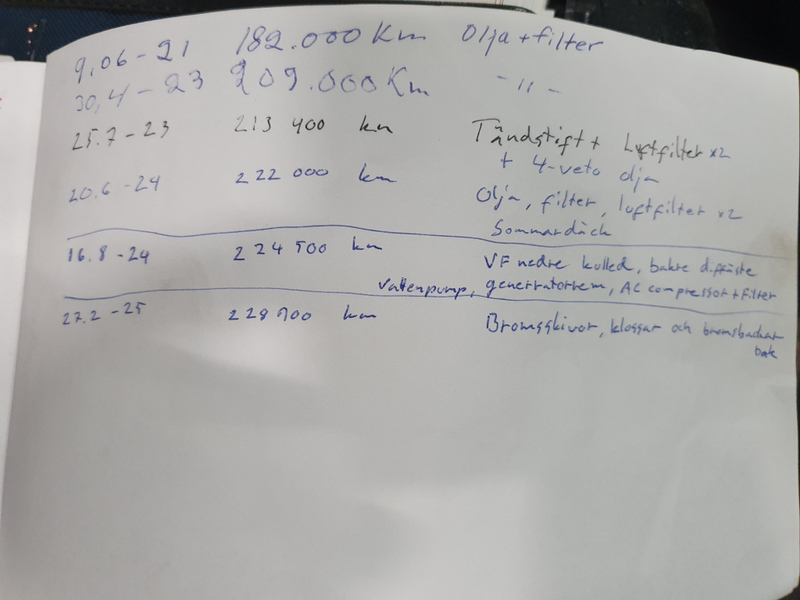 9.06-21 182.000 Km Olja + filter
30.4-23 209.000 Km -11-
25.7-23 213 400 km Tändstift + Luftfilter x2
+ 4-veto olja
20.6-24 222 000 km Olja, filter, luftfilter x2
Sommardäck
16.8-24 224 500 km VF nedre kulled, bakre difffäste
Vattenpump, generratorrem, AC compressor + filter
27.2-25 228 900 km Bromsskivor, klossar och bromsbackar
bak